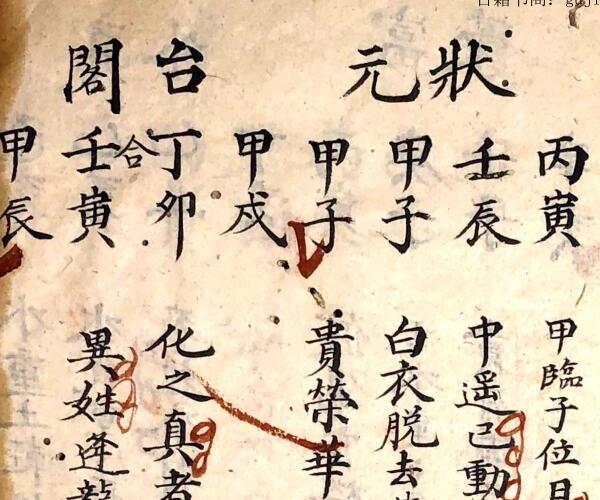 古籍书商：guji
狀元
台閣
丙寅
壬辰
甲子
甲子
甲戍
丁卯
合
壬寅
甲辰
甲臨子位
中遥已動
白衣脱去
貴榮華
化之真者
異姓逢龍